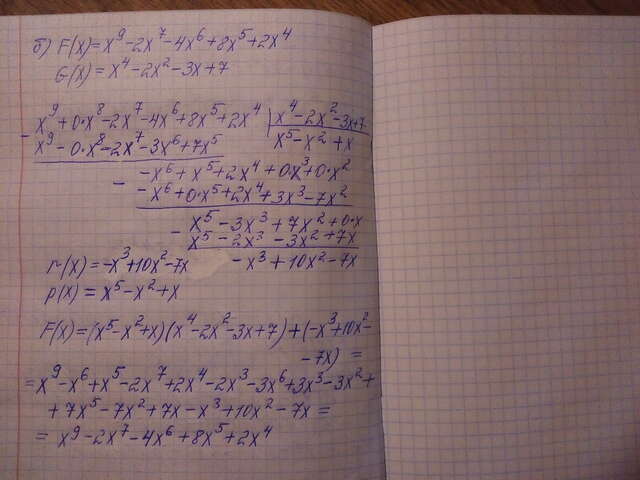 б) F(x)=x⁹-2x⁷-4x⁶+8x⁵+2x⁴
G(x)=x⁴-2x²-3x+7
x⁹+0·x⁸-2x⁷-4x⁶+8x⁵+2x⁴ | x⁴-2x²-3x+7
- x⁹-0·x⁸-2x⁷-3x⁶+7x⁵ x⁵-x²+x
-x⁶+x⁵+2x⁴+0·x³+0·x²
- -x⁶+0·x⁵+2x⁴+3x³-7x²
x⁵-3x³+7x²+0·x
- x⁵-2x³-3x²+7x
r(x)=-x³+10x²-7x -x³+10x²-7x
p(x)=x⁵-x²+x
F(x)=(x⁵-x²+x)(x⁴-2x²-3x+7)+(-x³+10x²-
-7x) =
=x⁹-x⁶+x⁵-2x⁷+2x⁴-2x³-3x⁶+3x³-3x²+
+7x⁵-7x²+7x-x³+10x²-7x=
= x⁹-2x⁷-4x⁶+8x⁵+2x⁴